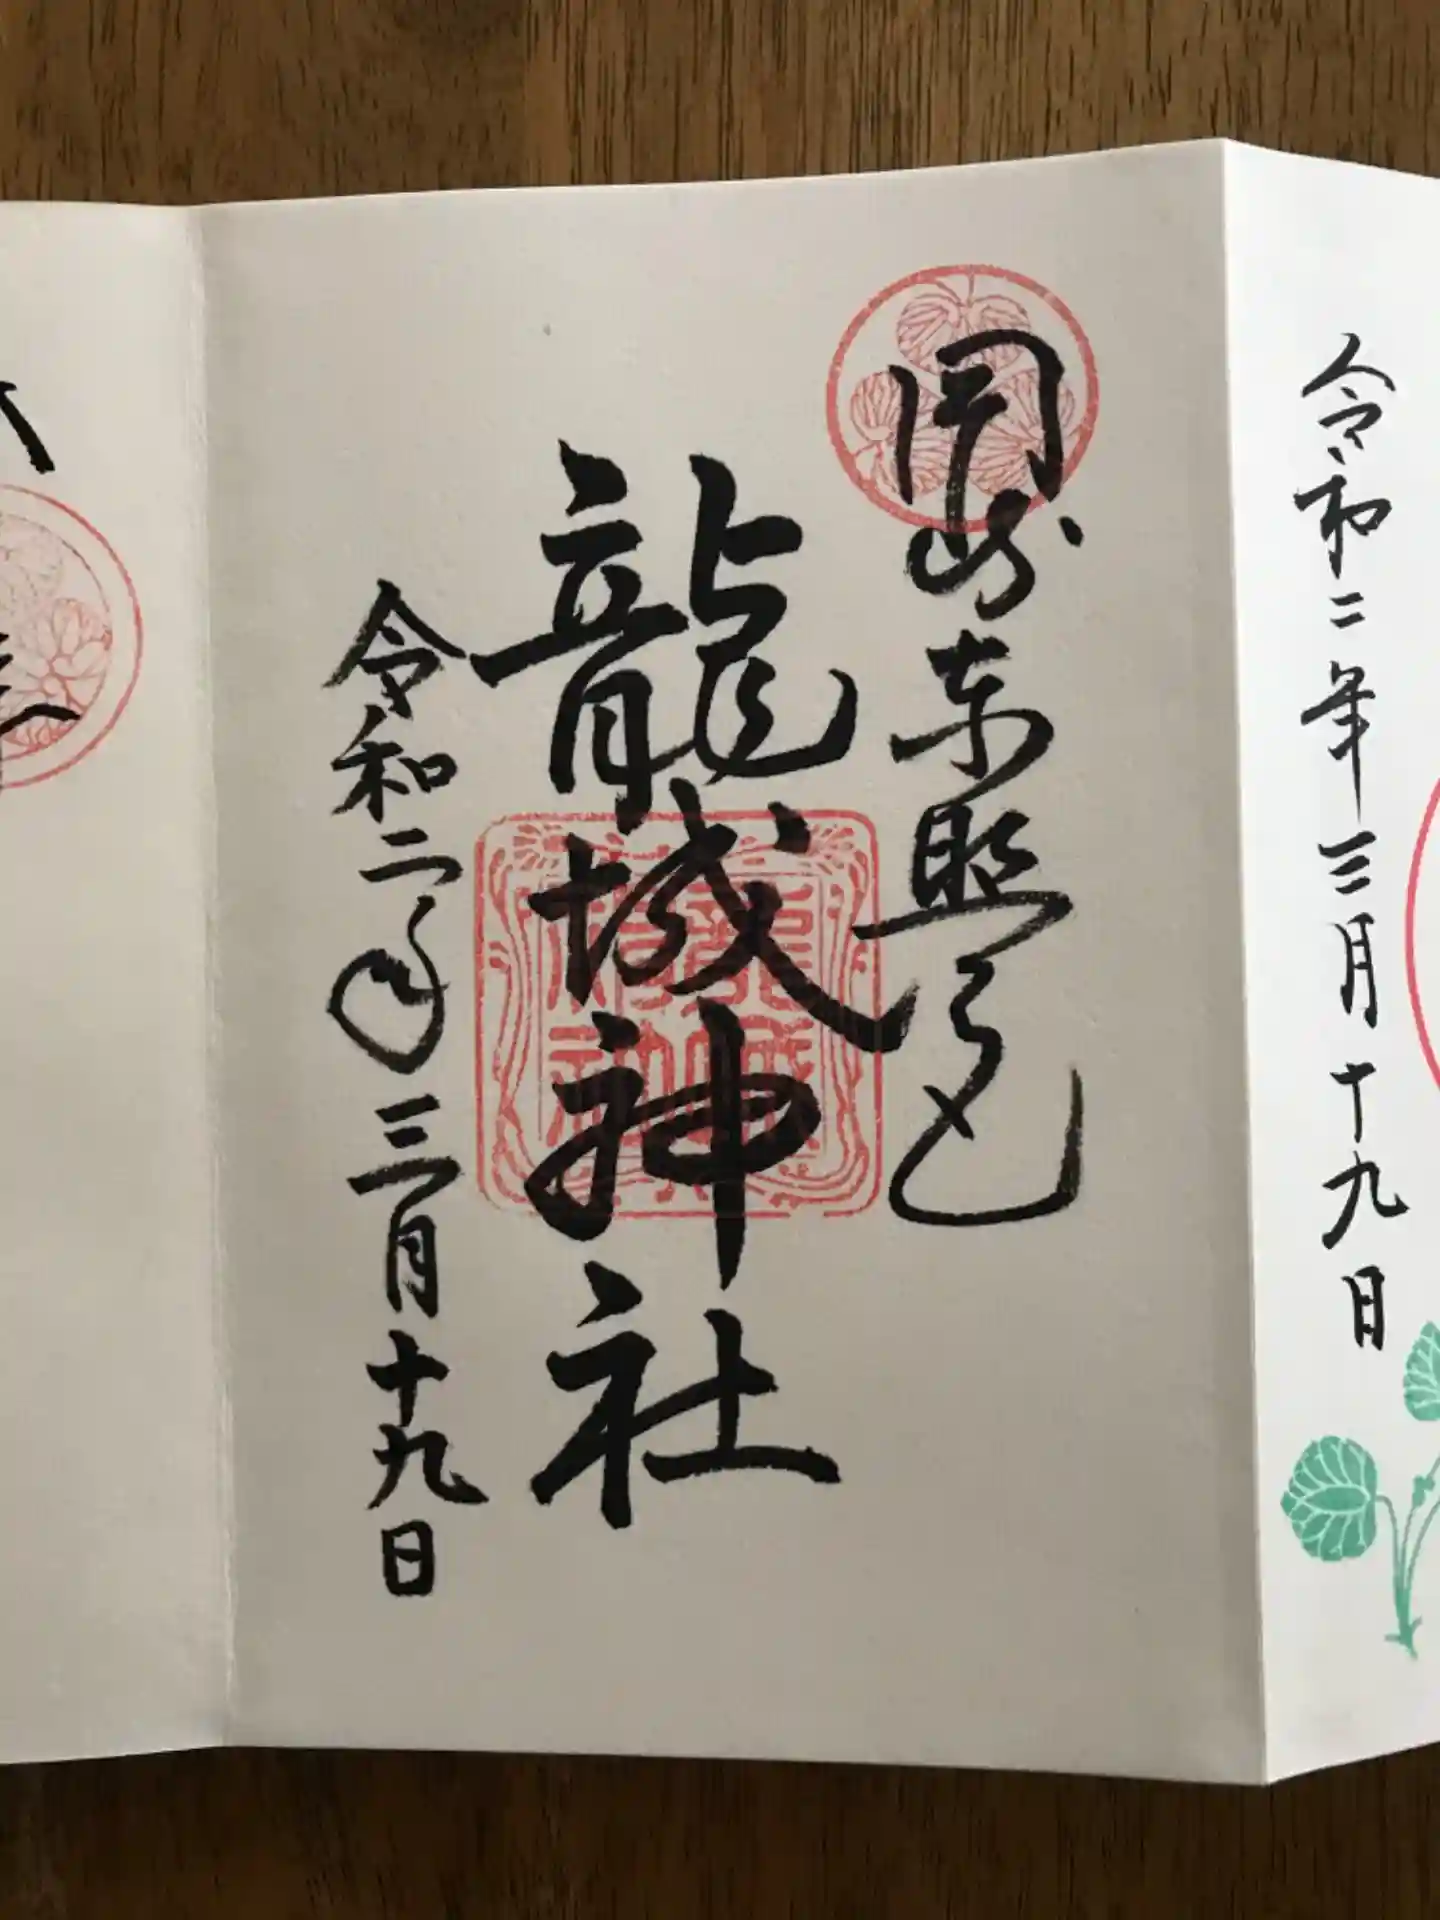 令和二年三月十九日
岡崎東照宮
龍城神社
令和二年三月十九日